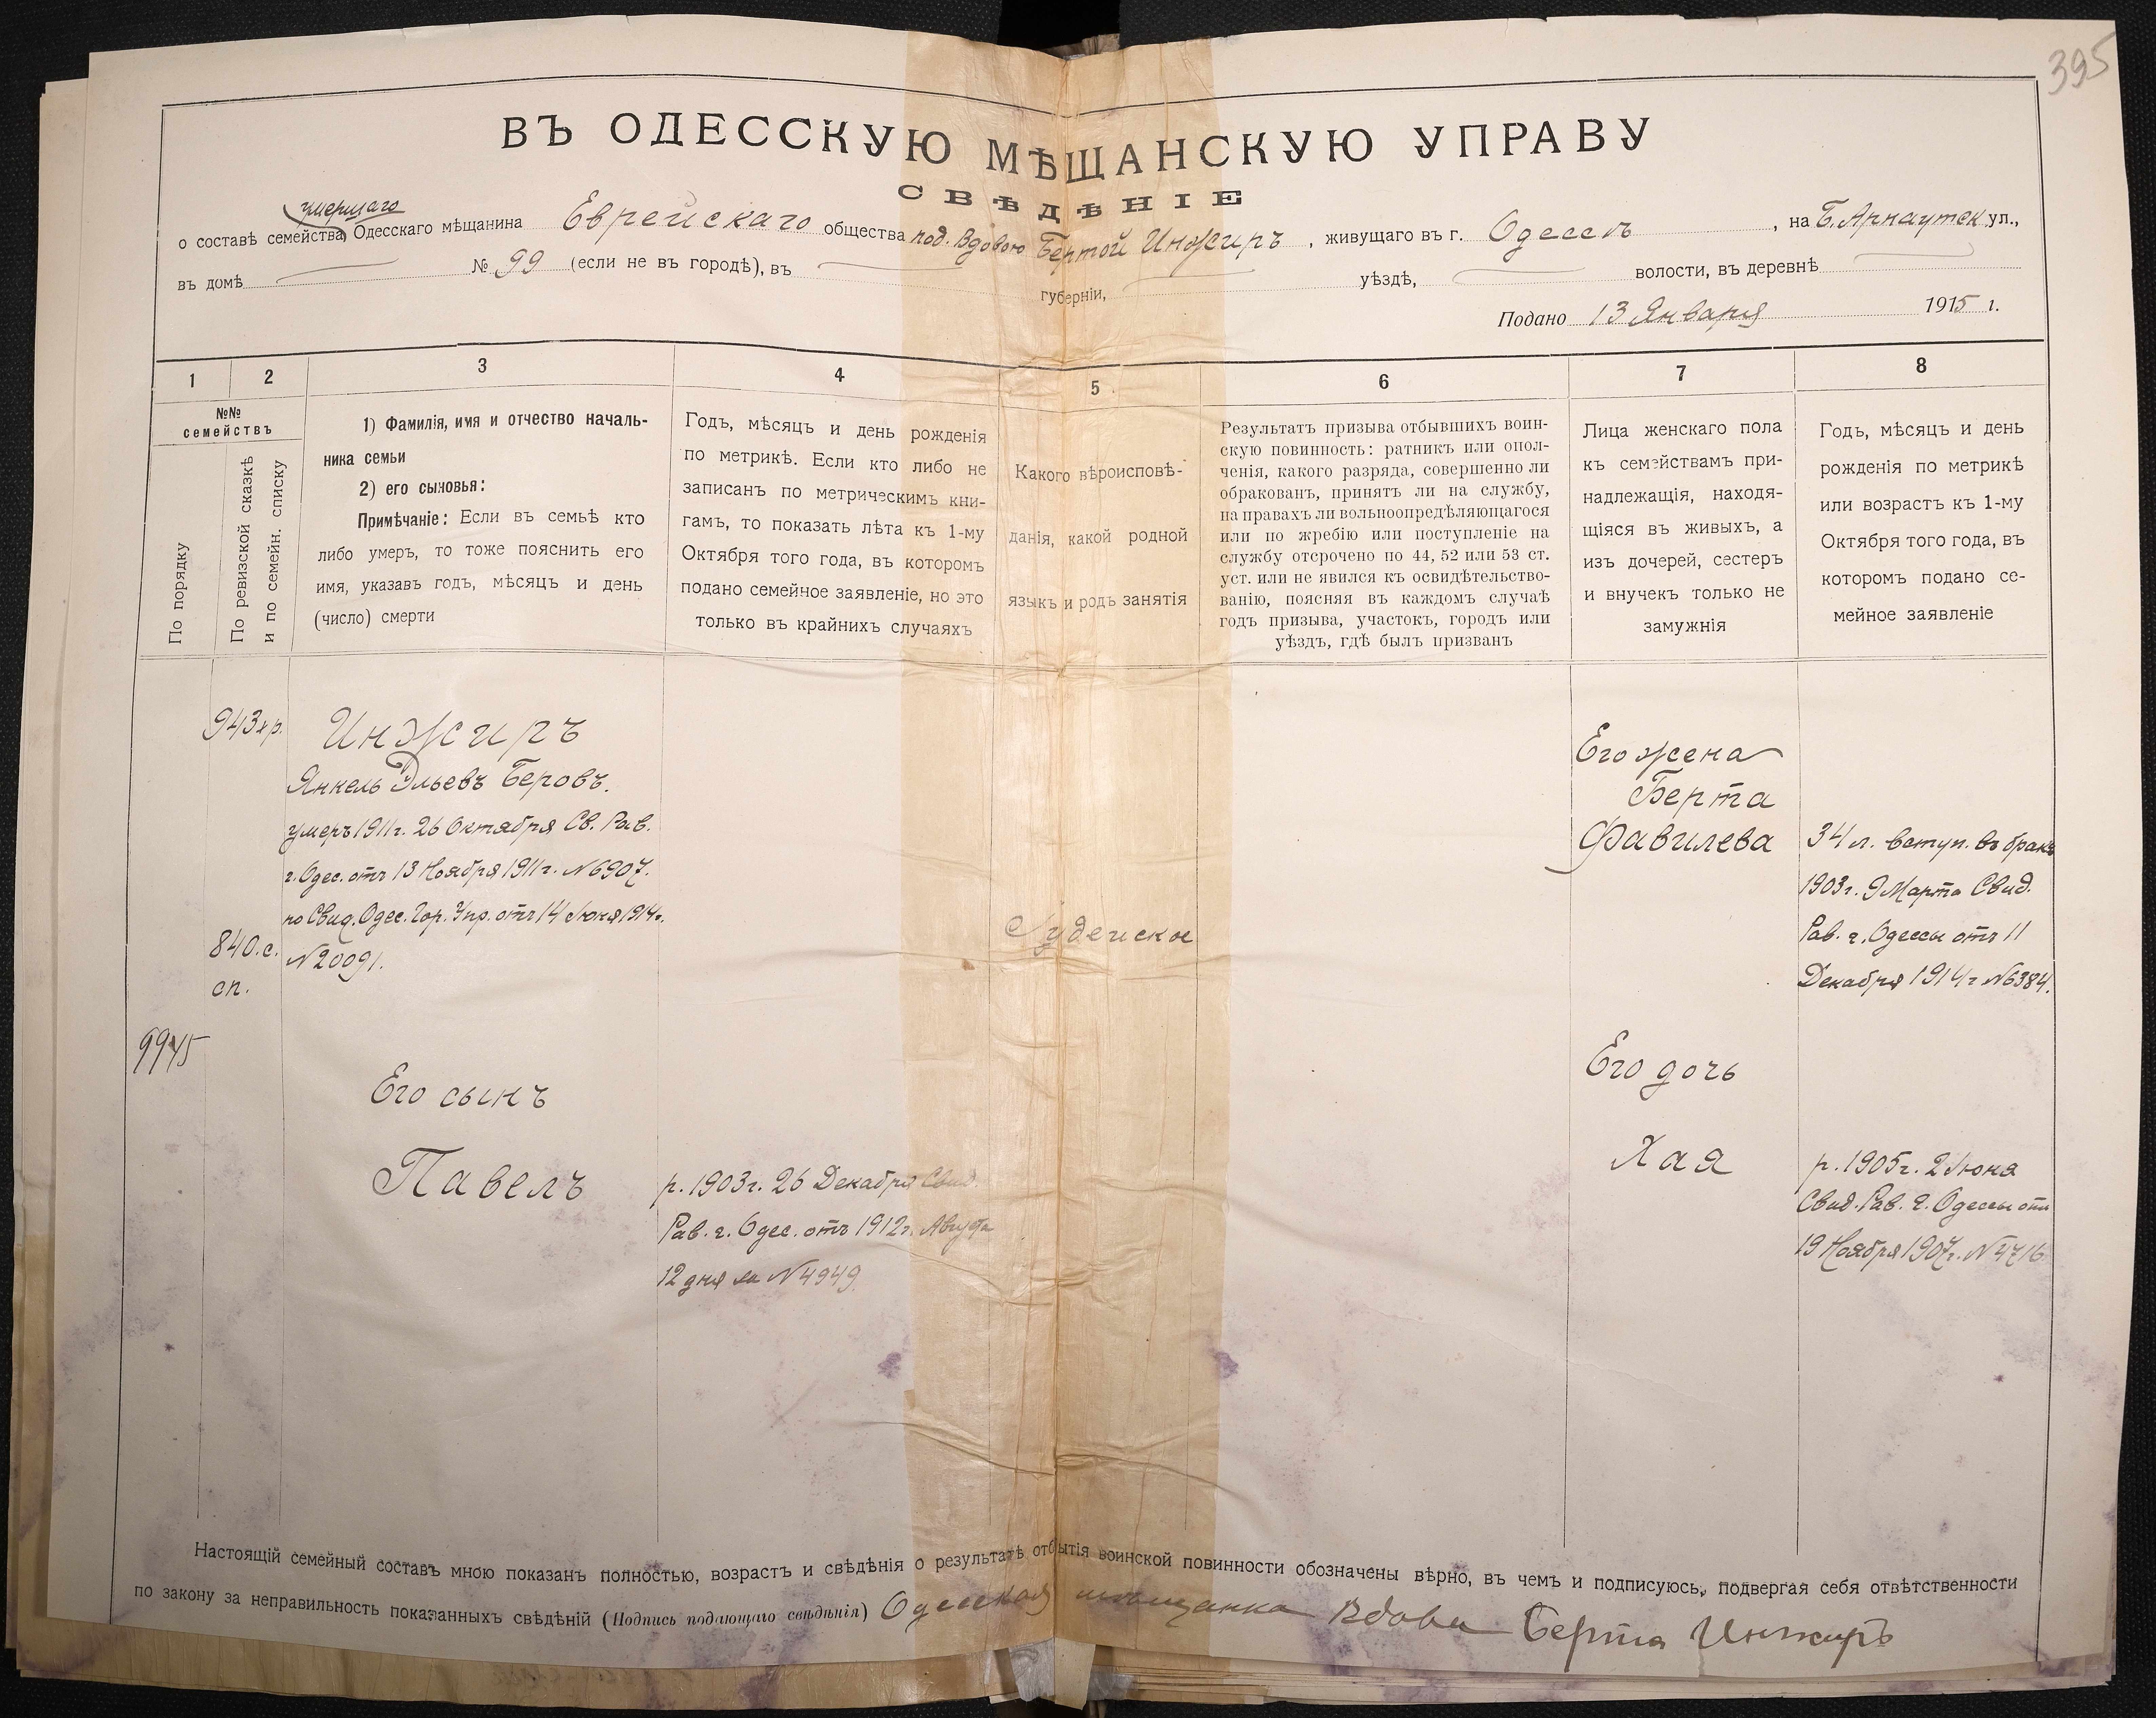 395
ВЪ ОДЕССКУЮ МѢЩАНСКУЮ УПРАВУ
СВѢДѢНІЕ
умершаго
о составѣ семейства Одесскаго мѣщанина Еврейскаго общества под. Вдовою Бертой Инжиръ, живущаго въ г. Одессѣ, на Б. Арнаутск ул.,
въ домѣ № 99 (если не въ городѣ), въ губерніи, уѣздѣ, волости, въ деревнѣ
Подано 13 Января 1915 г.
1
2
3
4
5
6
7
8
№№
семействъ
По порядку
По ревизской сказкѣ
и по семейн. списку
1) Фамилія, имя и отчество началь-
ника семьи
2) его сыновья:
Примѣчаніе: Если въ семьѣ кто
либо умеръ, то тоже пояснить его
имя, указавъ годъ, мѣсяцъ и день
(число) смерти
Годъ, мѣсяцъ и день рожденія
по метрикѣ. Если кто либо не
записанъ по метрическимъ кни-
гамъ, то показать лѣта къ 1-му
Октября того года, въ которомъ
подано семейное заявленіе, но это
только въ крайнихъ случаяхъ
Какого вѣроисповѣ-
данія, какой родной
языкъ и родъ занятія
Результатъ призыва отбывшихъ воин-
скую повинность: ратникъ или опол-
ченія, какого разряда, совершенно ли
обракованъ, принятъ ли на службу,
на правахъ ли вольноопредѣляющагося
или по жребію или поступленіе на
службу отсрочено по 44, 52 или 53 ст.
уст. или не явился къ освидѣтельство-
ванію, поясняя въ каждомъ случаѣ
годъ призыва, участокъ, городъ или
уѣздъ, гдѣ былъ призванъ
Лица женскаго пола
къ семействамъ при-
надлежащія, находя-
щіяся въ живыхъ, а
изъ дочерей, сестеръ
и внучекъ только не
замужнія
Годъ, мѣсяцъ и день
рожденія по метрикѣ
или возрастъ къ 1-му
Октября того года, въ
которомъ подано се-
мейное заявленіе
943
Инжиръ
Янкель Эльевъ Беровъ.
умеръ 1911 г. 26 Октября Св. Рав.
г. Одес. отъ 13 Ноября 1911 г. №6907.
по Свид. Одес. Гор. Упр. отъ 14 Июня 1914 г.
№20091.
840. с.
сп.
9945
Его сынъ
Павелъ
р. 1903 г. 26 Декабря Свид.
Рав. г. Одес. отъ 1912 г. Августа
12 дня за №4949
Іудейское
Его жена
Берта
Фавилева
34 л. вступ. въ бракъ
1903 г. 9 Марта Свид.
Рав. г. Одессы отъ 11
Декабря 1914 г №6384.
Его дочь
Хая
р. 1905 г. 2 Июня
Свид. Рав. г. Одессы отъ
19 Ноября 1907 г. №4716
Настоящій семейный составъ мною показанъ полностью, возрастъ и свѣдѣнія о результатѣ отбытія воинской повинности обозначены вѣрно, въ чемъ и подписуюсь, подвергая себя отвѣтственности
по закону за неправильность показанныхъ свѣдѣній (Подпись подающаго свѣдѣнія) Одесская мѣщанка Вдова Берта Инжиръ